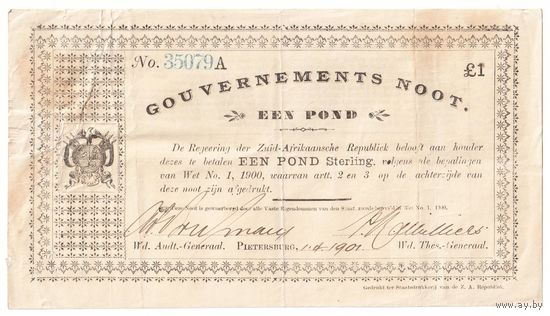 No. 35079A
£1
GOUVERNEMENTS NOOT.
EEN POND
De Regeering der Zuid-Afrikaansche Republiek belooft aan houder
dezes te betalen EEN POND Sterling, volgens de bepalingen
van Wet No. 1, 1900, waarvan artt. 2 en 3 op de achterzijde van
deze noot zijn afgedrukt.
Deze Noot is gewaarborgd door alle Vaste Eigendommen van den Staat, zooals bepaald bij Wet No. 1, 1900.
Wd. Audt.-Generaal. PIETERSBURG, 1-4-1901 Wd. Thes.-Generaal.
Gedrukt ter Staatsdrukkerij van de Z. A. Republiek.
www.ay.by